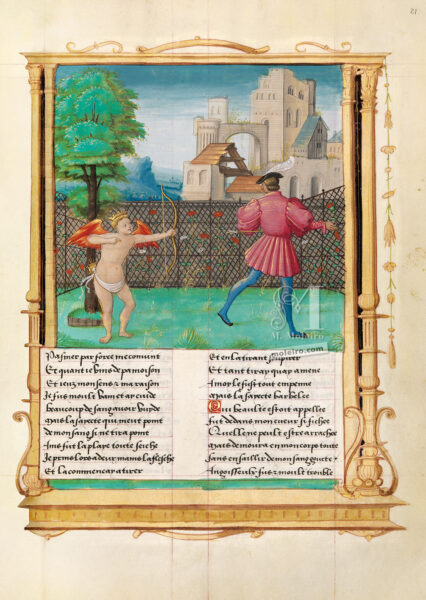 21
M
moleiro.com
Pasmer par force me convint
Et quant ie vins de pamoison
Et ieuz mon sens & ma raison
Je fus moult vain et ay cuide
beaucoup de sang avoir vuyde
Mais la saiecte qui me vt point
de mon sang si ne tira point
Ains fut la playe toute seiche
Je prins lors a deux mains la flesche
Et la commencay a tirer
Et en la tirant souspirer
Et tant tiray quay amene
A moy le fust tout empenne
Mais la saiecte barbelee
Qui beaulte estoit appellee
fut dedans mon cueur si fichee
Quelle ne peult estre arrachee
Mais demoura en mon corps toute
Sans en saillir de mon sang goutte
Angoisseulx fus & moult trouble